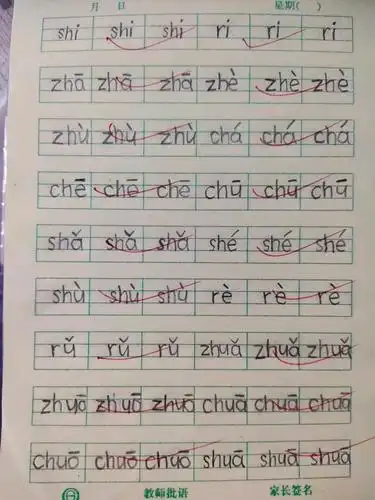 月 日 星期( )
shi shi shi ri ri ri
zhā zhā zhā zhè zhè zhè
zhù zhù zhù chá chá chá
chē chē chē chū chū chū
shǎ shǎ shǎ shé shé shé
shù shù shù rè rè rè
rǔ rǔ rǔ zhuǎ zhuǎ zhuǎ
zhuō zhuō zhuō chuā chuā chuā
chuō chuō chuō shuā shuā shuā
教师批语 家长签名